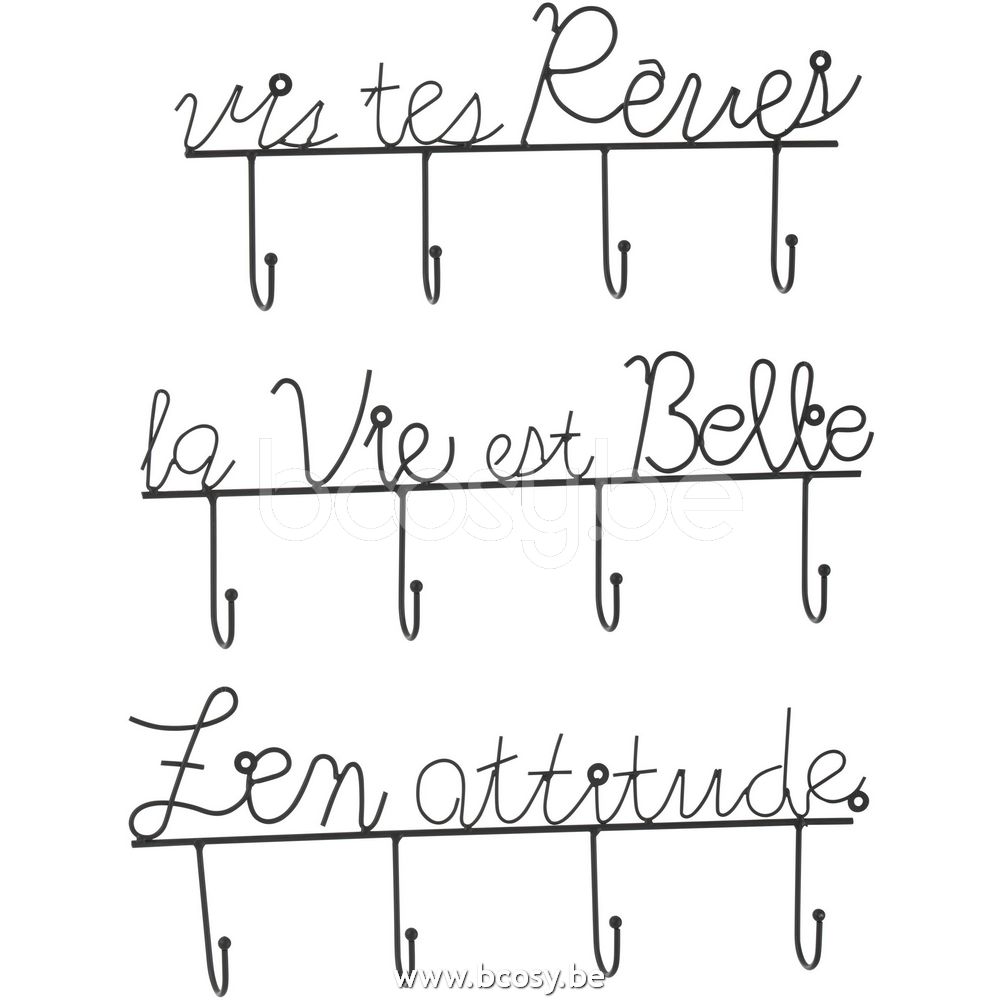 vis tes Rêves
la Vie est Belle
bcosy.be
Zen attitude
www.bcosy.be